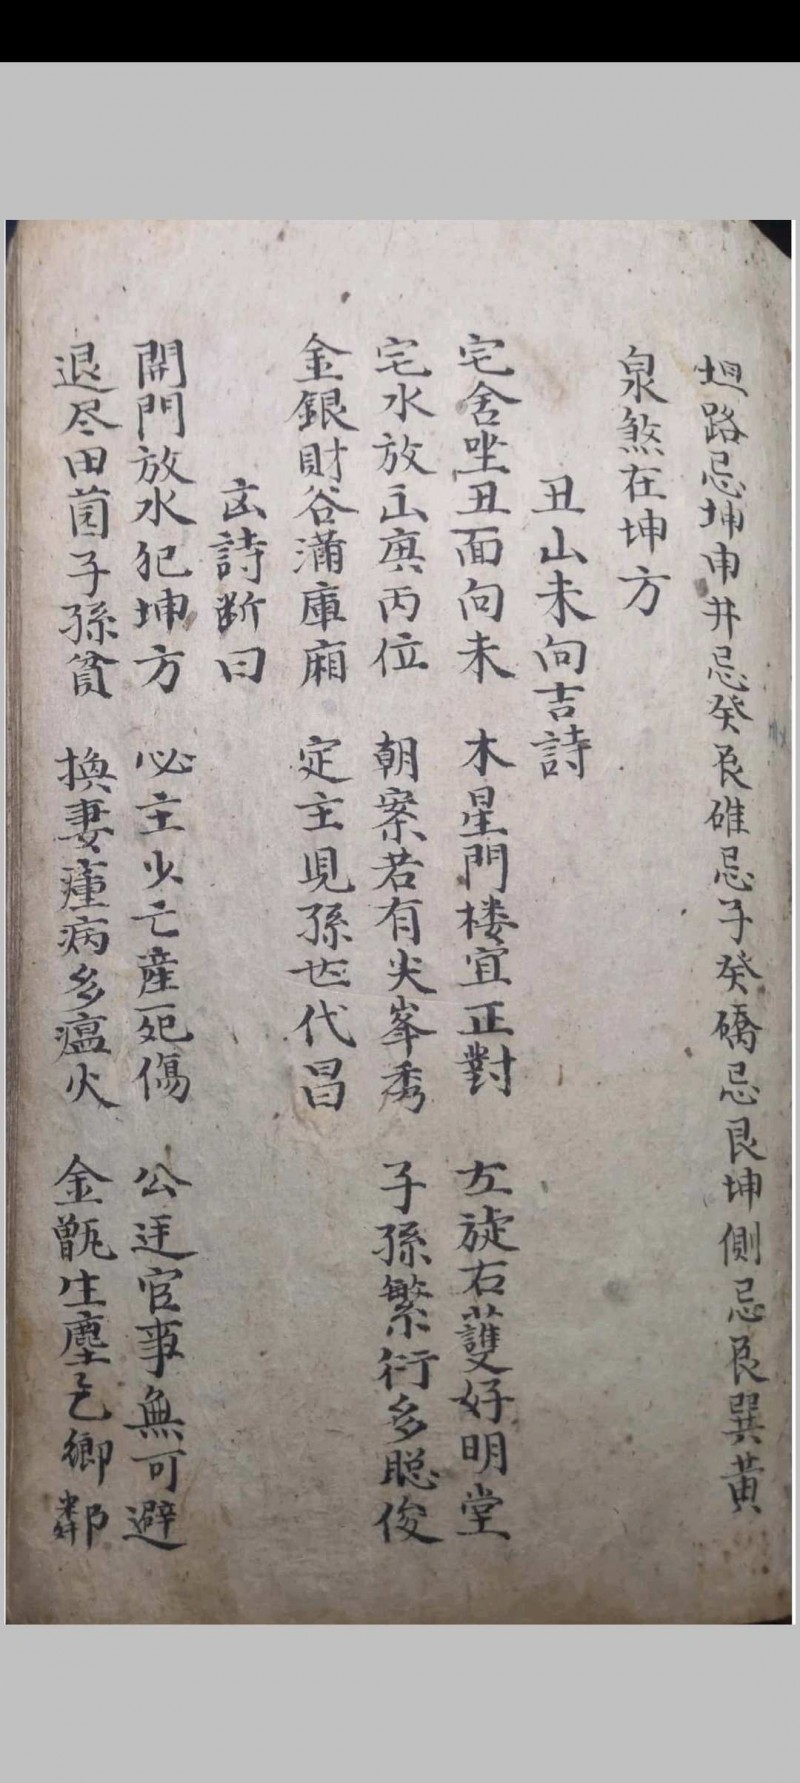 路忌坤申井忌癸艮碓忌子癸礄忌艮坤側忌艮巽黃
泉煞在坤方
丑山未向吉詩
宅舍坐丑面向未 木星門楼宜正對 左旋右護好明堂
宅水放正庚丙位 朝案若有尖峯秀 子孫繁衍多聪俊
金銀財谷滿庫廂 定主見孫世代昌
玄詩断曰
開門放水犯坤方 必主少亡産死傷 公迋官事無可避
退尽田園子孫貧 換妻瘇病多瘟火 金甑生塵乞鄉鄰